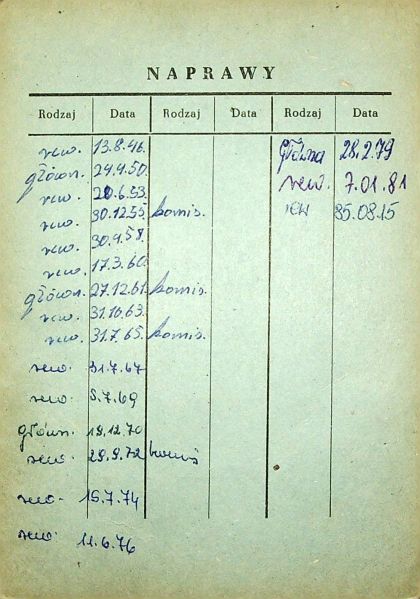 NAPRAWY
Rodzaj Data Rodzaj Data Rodzaj Data
rew. 13.8.46.
główn. 24.4.50.
rew. 20.6.53.
rew. 30.12.55. komis.
rew. 30.4.58.
rew. 17.3.60.
główn. 27.12.61. komis.
rew. 31.10.63.
rew. 31.7.65. komis.
rew. 31.7.67
rew. 5.7.69
główn. 19.12.70
rew. 29.9.72 komis
rew. 15.7.74
rew. 11.6.76
Główna 28.2.79
rew. 7.01.81
rew 85.08.15